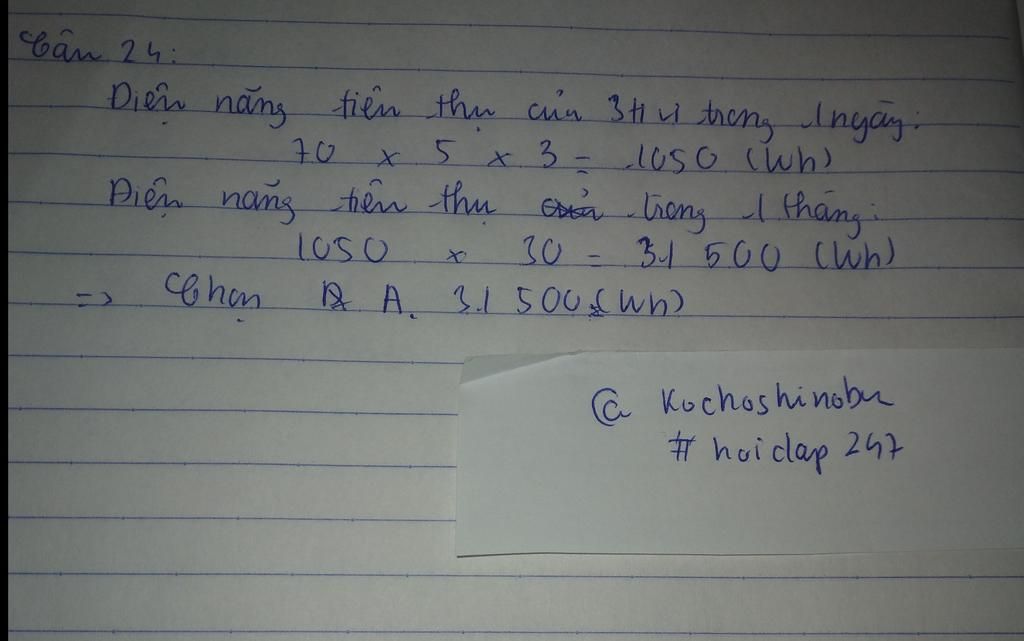 Câu 24:
Điện năng tiêu thụ của 3 ti vi trong 1 ngày:
70 x 5 x 3 = 1050 (Wh)
Điện năng tiêu thụ trong 1 tháng:
1050 x 30 = 31 500 (Wh)
=> Chọn A. 31 500 (Wh)
@ Kochoshinobu
# hoidap 247